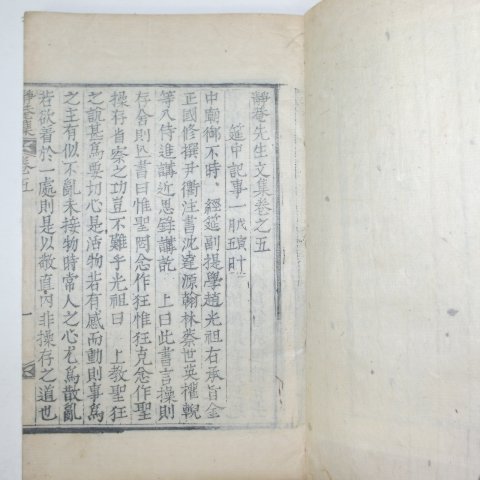 靜菴先生文集卷之五
筵中記事一
中廟御不時經筵副提學趙光祖右承旨金
正國修撰尹衢注書沈達源翰林蔡世英權輗
等入侍進講近思錄講訖 上曰此書言操則
存舍則亡書曰惟聖罔念作狂惟狂克念作聖
操存省察之功豈不難乎光祖曰 上敎聖狂
之說甚爲要切心是活物若有感而動則事爲
之主有似不亂未接物時常人之心尤爲散亂
若欲着於一處則是以敬直內非操存之道也
靜菴集 卷五 一